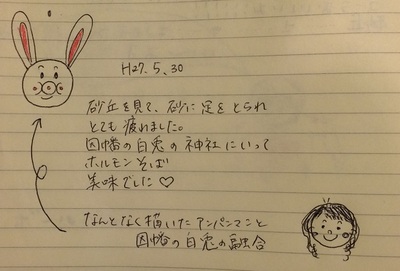 H27.5.30
砂丘を見て、砂に足をとられ
とても疲れました。
因幡の白兎の神社にいって
ホルモンそば
美味でした♡
なんとなく描いたアンパンマンこと
因幡の白兎の融合